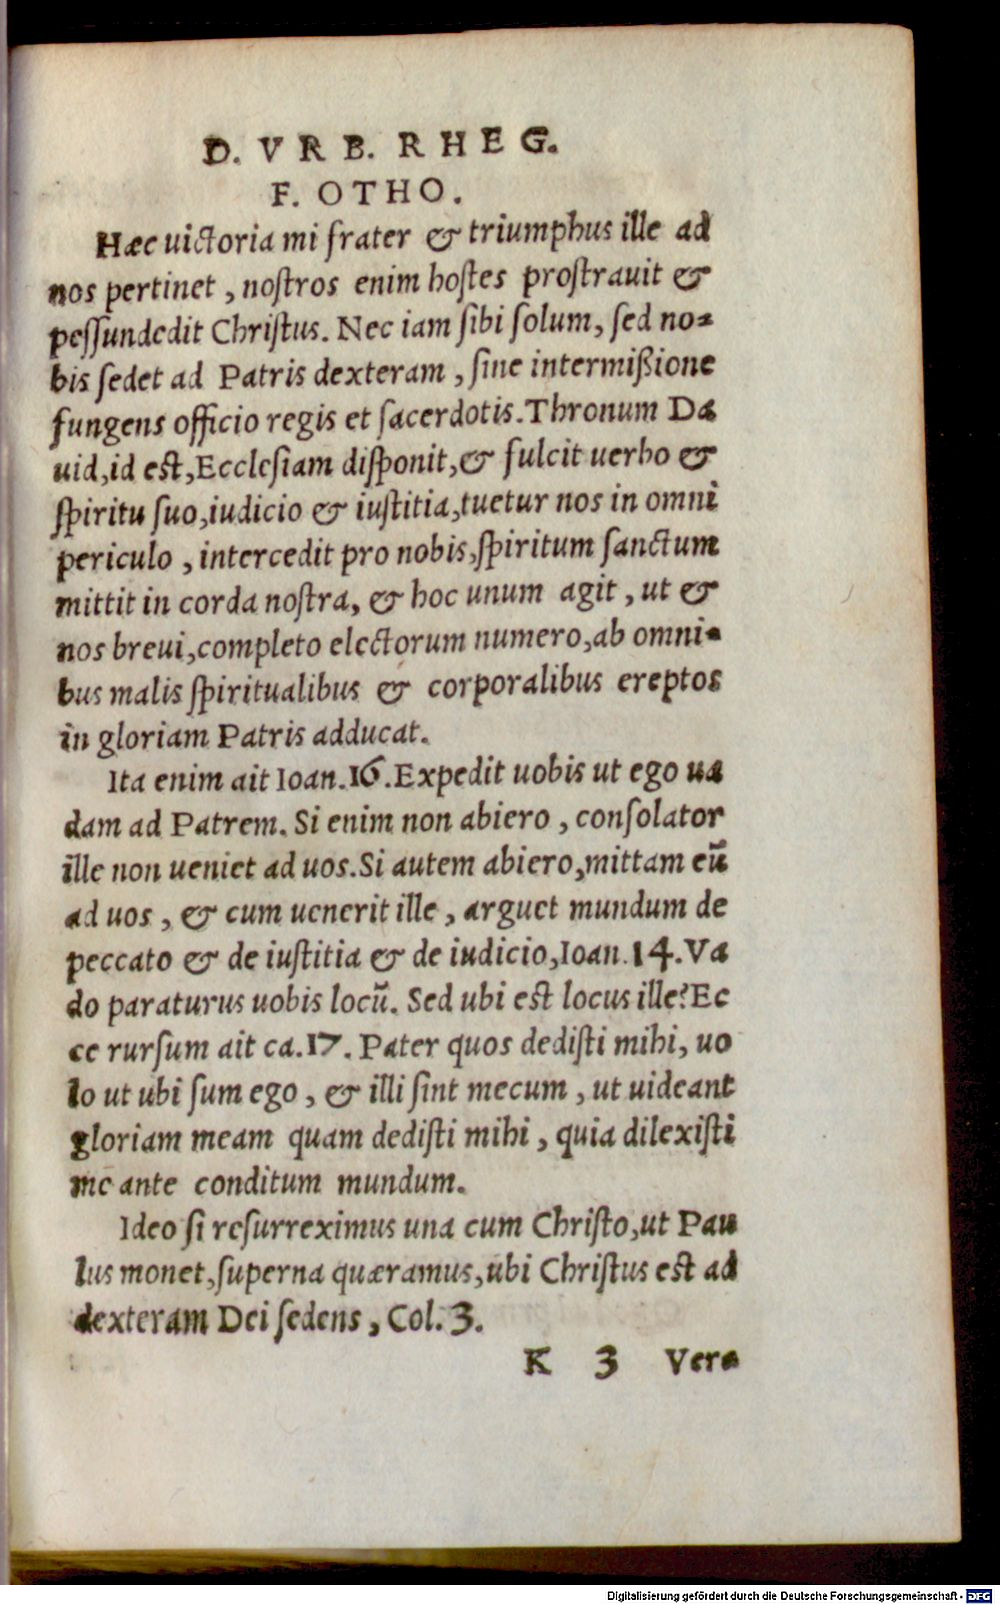 D. VRB. RHEG.
F. OTHO.
Hæc uictoria mi frater & triumphus ille ad
nos pertinet, noſtros enim hoſtes proſtrauit &
peſſundedit Chriſtus. Nec iam ſibi ſolum, ſed no-
bis ſedet ad Patris dexteram, ſine intermißione
fungens officio regis et ſacerdotis. Thronum Da
uid, id eſt, Eccleſiam diſponit, & fulcit uerbo &
ſpiritu ſuo, iudicio & iuſtitia, tuetur nos in omni
periculo, intercedit pro nobis, ſpiritum ſanctum
mittit in corda noſtra, & hoc unum agit, ut &
nos breui, completo electorum numero, ab omni-
bus malis ſpiritualibus & corporalibus ereptos
in gloriam Patris adducat.
Ita enim ait Ioan. 16. Expedit uobis ut ego ua
dam ad Patrem. Si enim non abiero, conſolator
ille non ueniet ad uos. Si autem abiero, mittam eū
ad uos, & cum uenerit ille, arguet mundum de
peccato & de iuſtitia & de iudicio, Ioan. 14. Va
do paraturus uobis locū. Sed ubi eſt locus ille? Ec
ce rurſum ait ca. 17. Pater quos dediſti mihi, uo
lo ut ubi ſum ego, & illi ſint mecum, ut uideant
gloriam meam quam dediſti mihi, quia dilexiſti
me ante conditum mundum.
Ideo ſi reſurreximus una cum Chriſto, ut Pau
lus monet, ſuperna quæramus, ubi Chriſtus eſt ad
dexteram Dei ſedens, Col. 3.
K 3 Vera
Digitalisierung gefördert durch die Deutsche Forschungsgemeinschaft - DFG